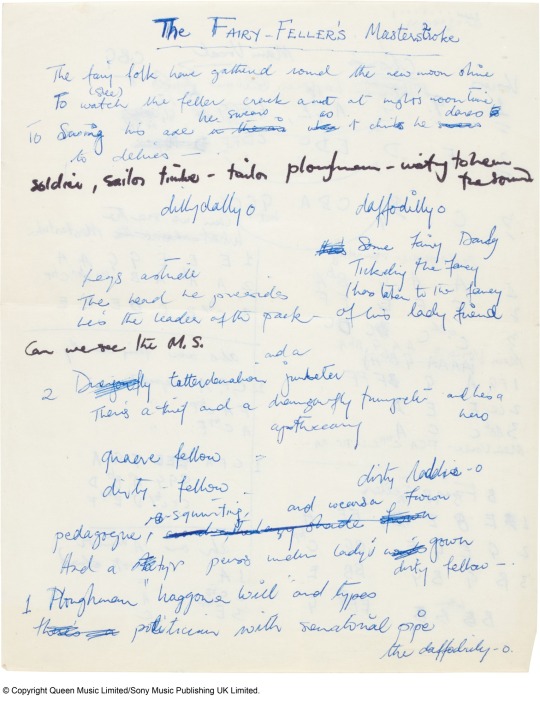 The FAIRY-FELLER'S Masterstroke
The fairy folk have gathered round the new moon shine
(see)
To watch the feller crack a nut at night's noon time
he swears as dares
To Swing his axe it climbs he
to deliver
soldier, sailor tinker - tailor ploughman - waiting to hear
the sound
dillydally o daffodilly o
Some fairy Dandy
Tickling the fancy
Legs astride
he has taken to the fancy
The head he presides
he's the leader of the pack - of his lady friend
Can we see the M.S.
and a
2 Dragonfly tatterdemalion junketer
There's a thief and a dragonfly trumpeter and he's a
hero
apothecary
quaere fellow
dirty laddie-o
dirty fellow
is squinting, and wears a frown
pedagogue,
And a satyr peers under lady's gown
dirty fellow -
1 Ploughman "waggoner will" and types
there's a politician with senatorial pipe
the daffodilly-o.
© Copyright Queen Music Limited/Sony Music Publishing UK Limited.